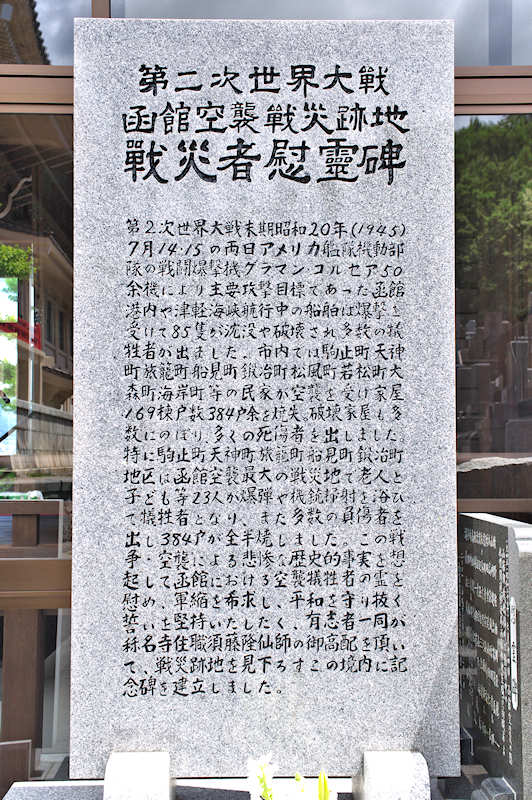 第二次世界大戦
函館空襲戦災跡地
戰災者慰靈碑
第2次世界大戦末期昭和20年(1945)
7月14・15の両日アメリカ艦隊機動部
隊の戦闘爆撃機グラマン・コルセア50
余機により主要攻撃目標であった函館
港内や津軽海峡航行中の船舶は爆撃を
受けて85隻が沈没や破壊され多数の犠
牲者が出ました。市内では駒止町天神
町旅籠町船見町鍛冶町松風町若松町大
森町海岸町等の民家が空襲を受け家屋
169棟戸数384戸余を焼失。破壊家屋も多
数にのぼり、多くの死傷者を出しました。
特に駒止町天神町旅籠町船見町鍛冶町
地区は函館空襲最大の戦災地で老人と
子ども等23人が爆弾や機銃掃射を浴び
て犠牲者となり、また多数の負傷者を
出し384戸が全半焼しました。この戦
争・空襲による悲惨な歴史的事実を想
起して函館における空襲犠牲者の霊を
慰め、軍縮を希求し、平和を守り抜く
誓いを堅持いたしたく、有志者一同が
称名寺住職須藤隆仙師の御高配を頂い
て、戦災跡地を見下ろすこの境内に記
念碑を建立しました。